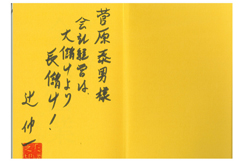 菅原泰男様
会社経営は、
大儲けより
長儲け!
辻 伸一